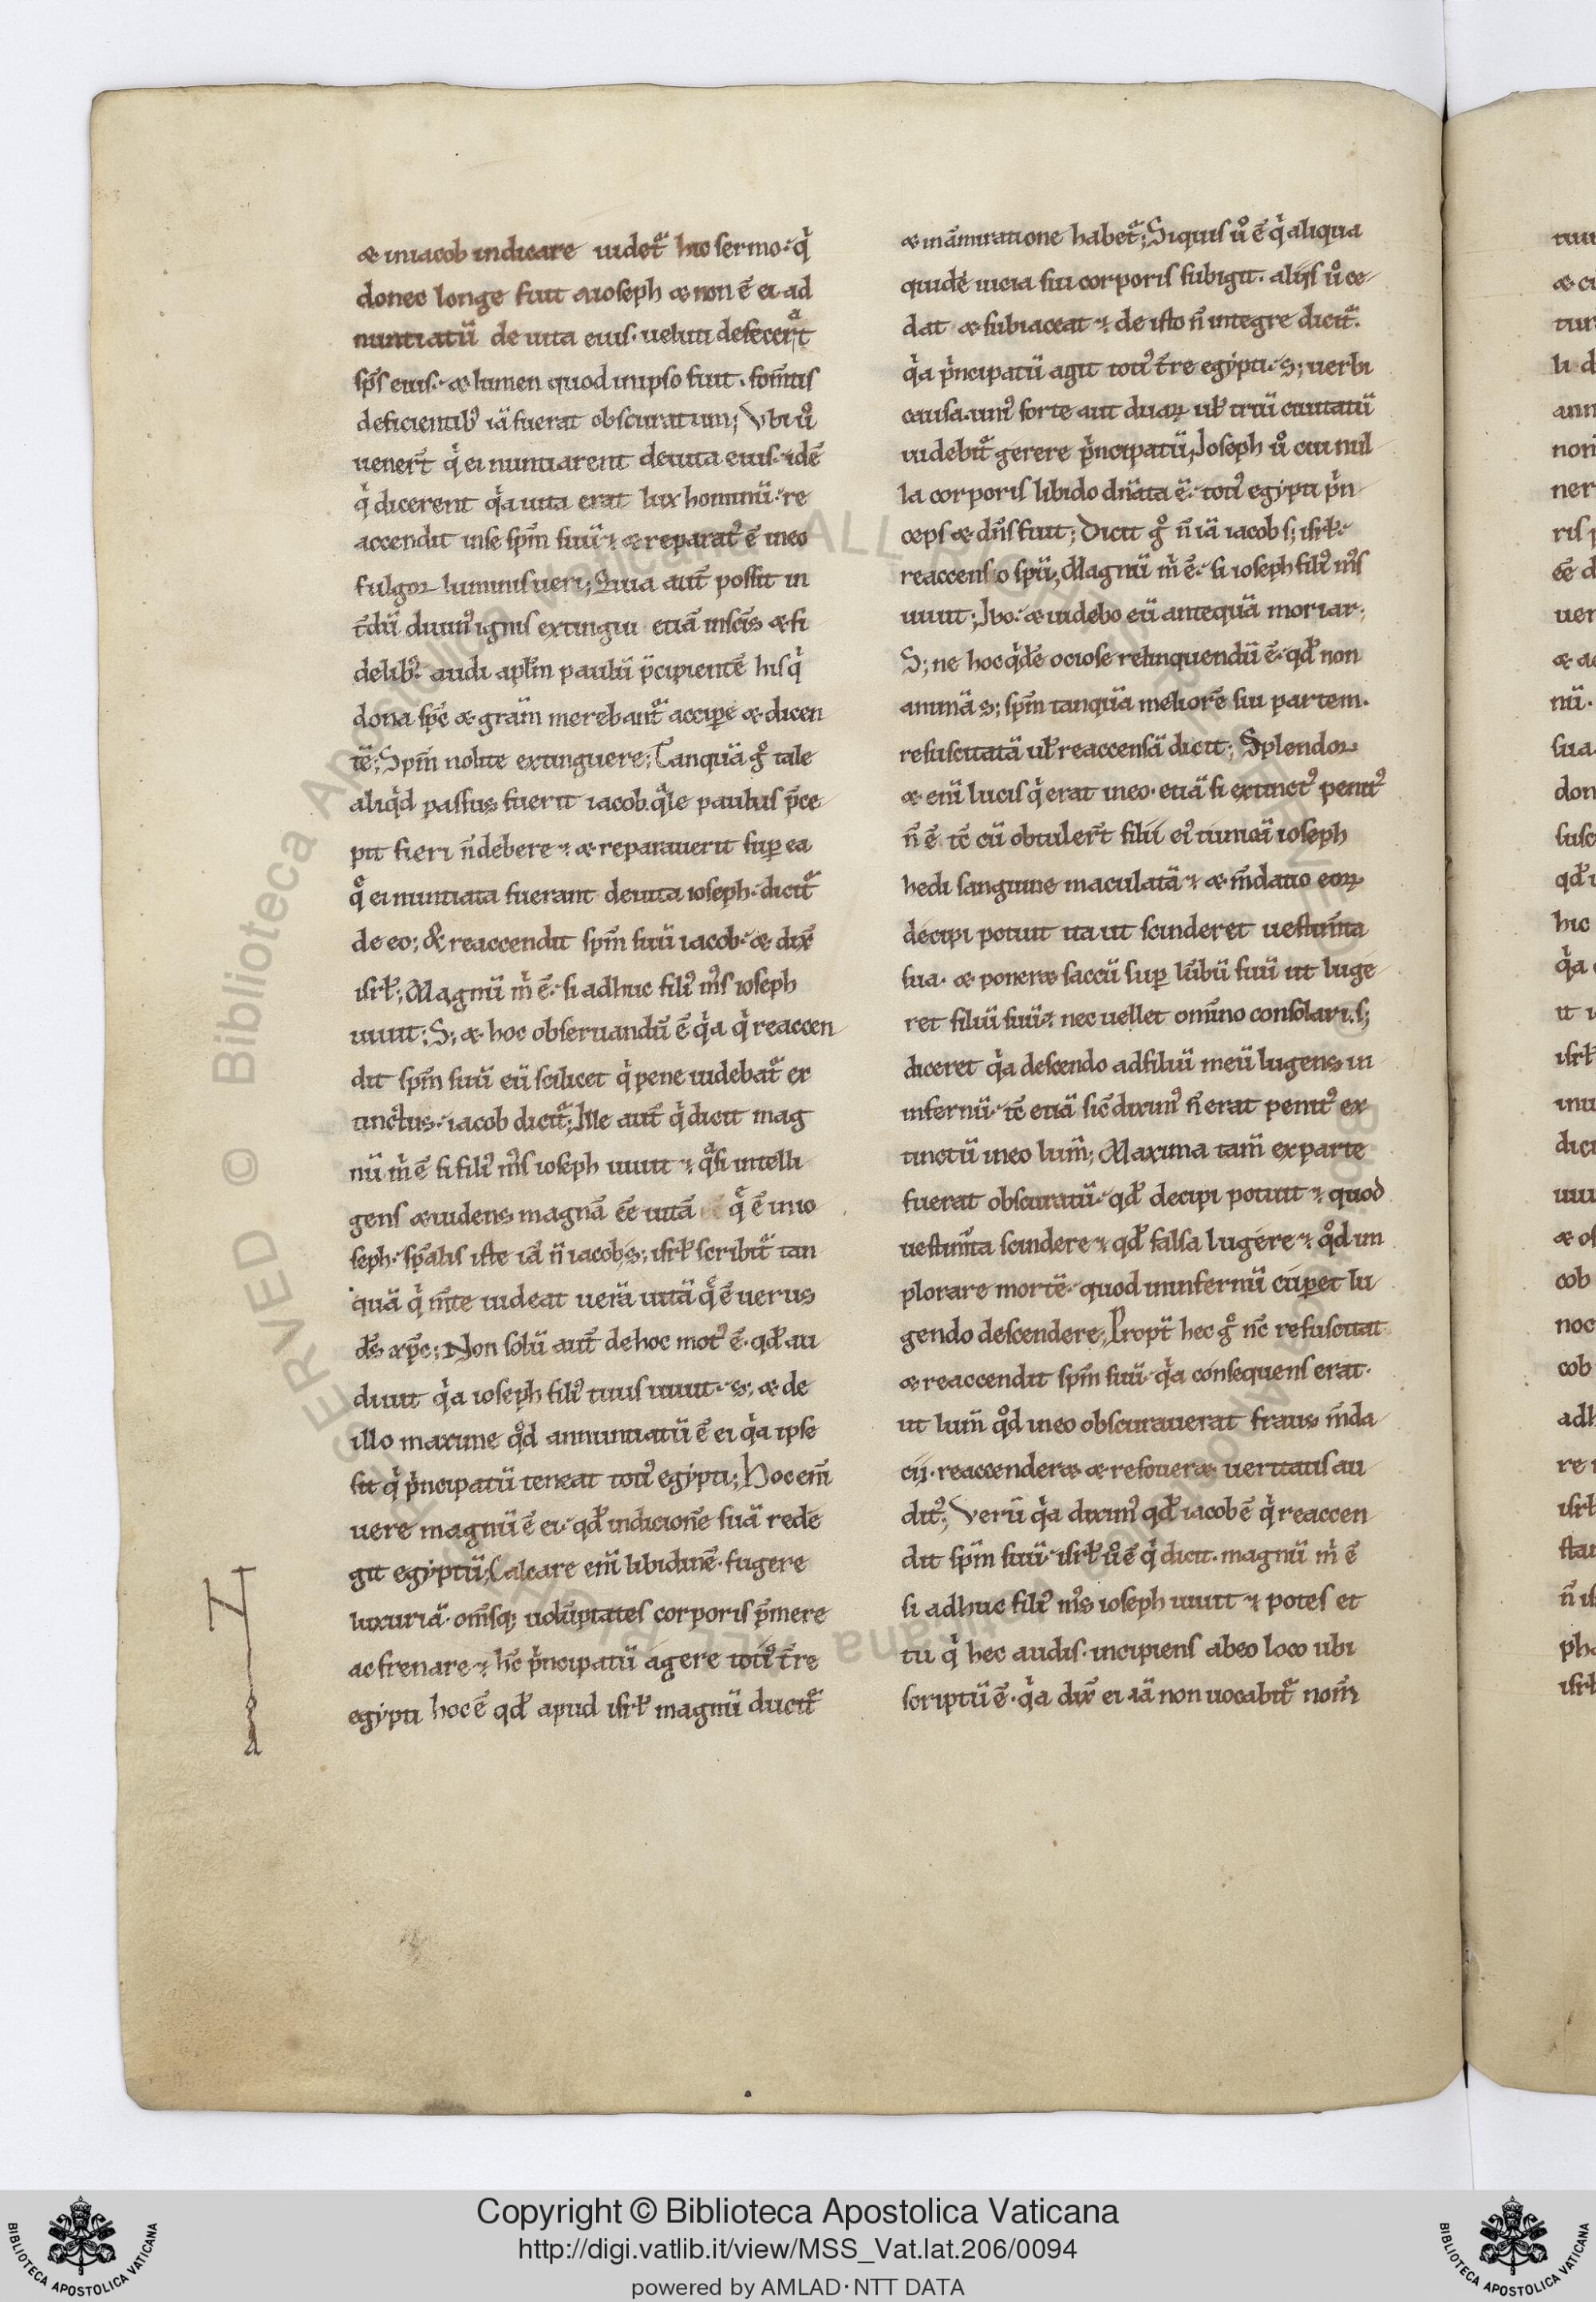 & iniacob indicare uidet᷑ hic sermo· q̇
donec longe fuit aioseph & non ē ei ad
nuntiatū de uita eius· ueluti defecer̄t
sp̄s eius· & lumen quod inipso fuit· fom̄tis
deficientib; iā fuerat obscuratum; Vbi u̇
uener̄t q̇ ei nuntiarent deuita eius· idē
q̇ dicerent q̇a uita erat lux hominū· re
accendit inse sp̄m suū· & reparat᷒ ē ineo
fulgor luminis ueri; Quia aut̄ possit in
t̄dū diuin᷒ ignis extingui etiā inscīs & fi
delib᷒· audi apl̄m paulū p̄cipientē his q̇
dona sp̄c & grām merebant᷑ accipe & dicen
tē; Spm̄ nolite extinguere; Tanquā g̊ tale
aliq̇d passus fuerit iacob q̇le paulus p̄ce
pit fieri n̄ debere· & reparauerit sup ea
q̄ ei nuntiata fuerant deuita ioseph· dicit᷑
de eo; & reaccendit sp̄m suū iacob· & dix̄
isrl̄; Magnū ṁ ē· si adhuc fili᷒ m̄s ioseph
uiuit; S; & hoc obseruandū ē q̇a q̇ reaccen
dit sp̄m suū eū scilicet q̇ pene uidebat᷑ ex
tinctus· iacob dicit᷑; Ille aut̄ q̇ dicit mag
nū ṁ ē si fili᷒ m̄s ioseph uiuit· q̄si intelli
gens & uidens magnā ēē uitā q̄ ē inio
seph· sp̄alis iste iā n̄ iacob s; isrl̄ scribit᷑ tan
quā q̇ m̄te uideat uerā uitā q̄ ē uerus
d̄s xp̄c; Non solū aut̄ dehoc mot᷒ ē· qd̄ au
diuit q̇a ioseph fili᷒ tuus uiuit· s; & de
illo maxime q̊d annuntiatū ē ei q̇a ipse
sit q̇ ṗncipatū teneat toti᷒ egypti; Hoc em̄
uere magnū ē ei· qd̄ indicionē suā rede
git egyptū; Calcare em̄ libidinē· fugere
luxuriā· om̄sq; uoluptates corporis p̄mere
ac frenare· hc̄ ṗncipatū agere toti᷒ t̄re
egypti hoc ē qd̄ apud isrl̄ magnū ducit᷑
& inām̄iratione habet᷑; Siquis u̇ ē q̇ aliqua
quidē uicia sui corporis subigit· alijs u̇ ce
dat & subiaceat· de isto n̄ integre dicit᷑·
q̇a ṗncipatū agit toti᷒ t̄re egypti· s; uerbi
causa· uni᷒ forte aut duaꝝ ul̄ triū ciuitatū
uidebit᷑ gerere ṗncipatū; Ioseph u̇ cui nul
la corporis libido dn̄ata ē· toti᷒ egypti ṗn
ceps & dn̄s fuit; Dicit g̊ n̄ iā iacob s; isrl̄·
reaccenso spū; Magnū ṁ ē· si ioseph fili᷒ m̄s
uiuit; Ibo· & uidebo eū antequā moriar;
S; ne hoc q̇dē ociose relinquendū ē· qd̄ non
animā s; sp̄m tanquā meliorē sui partem·
resuscitatā ul̄ reaccensā dicit; Splendor
& eni lucis q̇ erat ineo· etiā si extinct᷒ penit᷒
n̄ ē tc̄ cū obtuler̄t filii ei᷒ tunicā ioseph
hedi sanguine maculatā· & m̄datio eoꝝ
decipi potuit ita ut scinderet uestim̄ta
sua· & poner& saccū sup lūbū suū ut luge
ret filiū suū· nec uellet om̄ino consolari· s;
diceret q̇a descendo adfiliū meū lugens in
infernū· tc̄ etiā sic̄ dixim᷒ n̄ erat penit᷒ ex
tinctū ineo lum̄; Maxima tam̄ exparte
fuerat obscuratū· qd̄ decipi potuit· quod
uestim̄ta scindere· qd̄ falsa lugere· q̊d im
plorare mortē· quod ininfernū cuperet lu
gendo descendere; Propt̄ hec g̊ nc̄ resuscitat
& reaccendit sp̄m suū· q̇a consequens erat·
ut lum̄ q̊d ineo obscurauerat fraus m̄da
cij· reaccender& & refouer& ueritatis au
dit᷒; Verū q̇a dixim᷒ qd̄ iacob ē q̇ reaccen
dit sp̄m suū· isrl̄ u̇ ē q̇ dicit· magnū ṁ ē
si adhuc fili᷒ m̄s ioseph uiuit· potes et
tu q̇ hec audis· incipiens abeo loco ubi
scriptū ē· q̇a dix̄ ei iā non uocabit᷑ nom̄
Copyright © Biblioteca Apostolica Vaticana
http://digi.vatlib.it/view/MSS_Vat.lat.206/0094
powered by AMLAD·NTT DATA
BIBLIOTECA APOSTOLICA VATICANA
BIBLIOTECA APOSTOLICA VATICANA